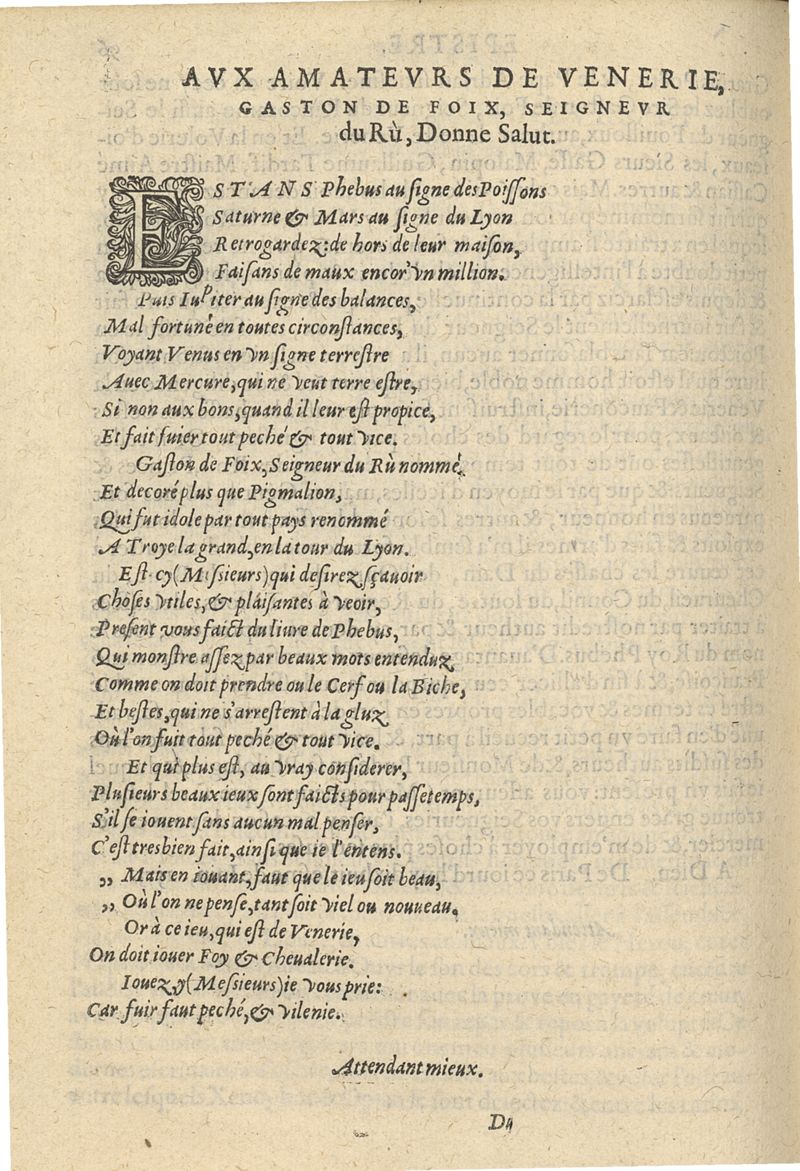 AVX AMATEVRS DE VENERIE,
GASTON DE FOIX, SEIGNEVR
du Rù, Donne Salut.
ESTANS Phebus au signe des Poissons
Saturne & Mars au signe du Lyon
Retrogardez: de hors de leur maison,
Faisans de maux encor' vn million.
Puis Iupiter au signe des balances,
Mal fortuné en toutes circonstances,
Voyant Venus en vn signe terrestre
Auec Mercure, qui ne veut terre estre,
Si non aux bons, quand il leur est propice,
Et fait fuier tout peché & tout vice.
Gaston de Foix, Seigneur du Rù nommé,
Et decoré plus que Pigmalion,
Qui fut idole par tout pays renommé
A Troye la grand, en la tour du Lyon.
Est cy (Messieurs) qui desirez sçauoir
Choses vtiles, & plaisantes à veoir,
Present vous faict du liure de Phebus,
Qui monstre assez par beaux mots entenduz
Comme on doit prendre ou le Cerf ou la Biche,
Et bestes, qui ne s'arrestent à la gluz
Où l'on fuit tout peché & tout vice.
Et qui plus est, au vray considerer,
Plusieurs beaux ieux sont faicts pour passetemps,
S'il se iouent sans aucun mal penser,
C'est tresbien fait, ainsi que ie l'entens.
„ Mais en iouant, faut que le ieu soit beau,
„ Où l'on ne pense, tant soit viel ou nouueau.
Or à ce ieu, qui est de Venerie,
On doit iouer Foy & Cheualerie.
Iouez y (Messieurs) ie vous prie:
Car fuir faut peché, & vilenie.
Attendant mieux.